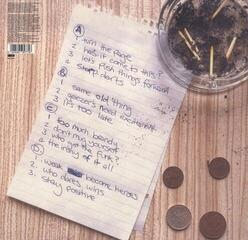 A
1 turn the page
2 has it come to this?
3 let's push things forward
4 sharp darts
B
1 same old thing
2 geezers need excitement
3 It's too late
C
1 too much brandy
2 don't mug yourself
3 who got the funk?
4 the irony of it all
D
1. weak become heroes
2. who dares wins
3. stay positive